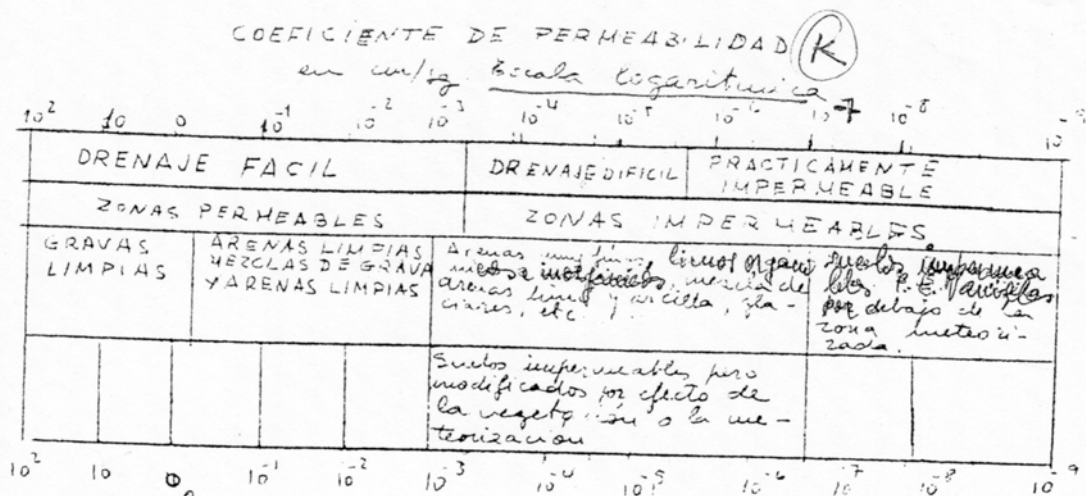 COEFICIENTE DE PERMEABILIDAD (K)
en cm/sg. Escala logaritmica
10² 10 0 10⁻¹ 10⁻² 10⁻³ 10⁻⁴ 10⁻⁵ 10⁻⁶ 10⁻⁷ 10⁻⁸ 10⁻⁹
DRENAJE FACIL DRENAJE DIFICIL PRACTICAMENTE
IMPERMEABLE
ZONAS PERMEABLES ZONAS IMPERMEABLES
GRAVAS
LIMPIAS
ARENAS LIMPIAS
MEZCLAS DE GRAVA
Y ARENAS LIMPIAS
Arenas muy finas, limos orgáni
cos e inorgánicos, mezcla de
arenas limo y arcilla, gla-
ciares, etc
suelos impermea
bles P.E. arcillas
por debajo de la
zona meteori-
zada.
Suelos impermeables pero
modificados por efecto de
la vegetación o la me-
teorizacion
10² 10 0 10⁻¹ 10⁻² 10⁻³ 10⁻⁴ 10⁻⁵ 10⁻⁶ 10⁻⁷ 10⁻⁸ 10⁻⁹